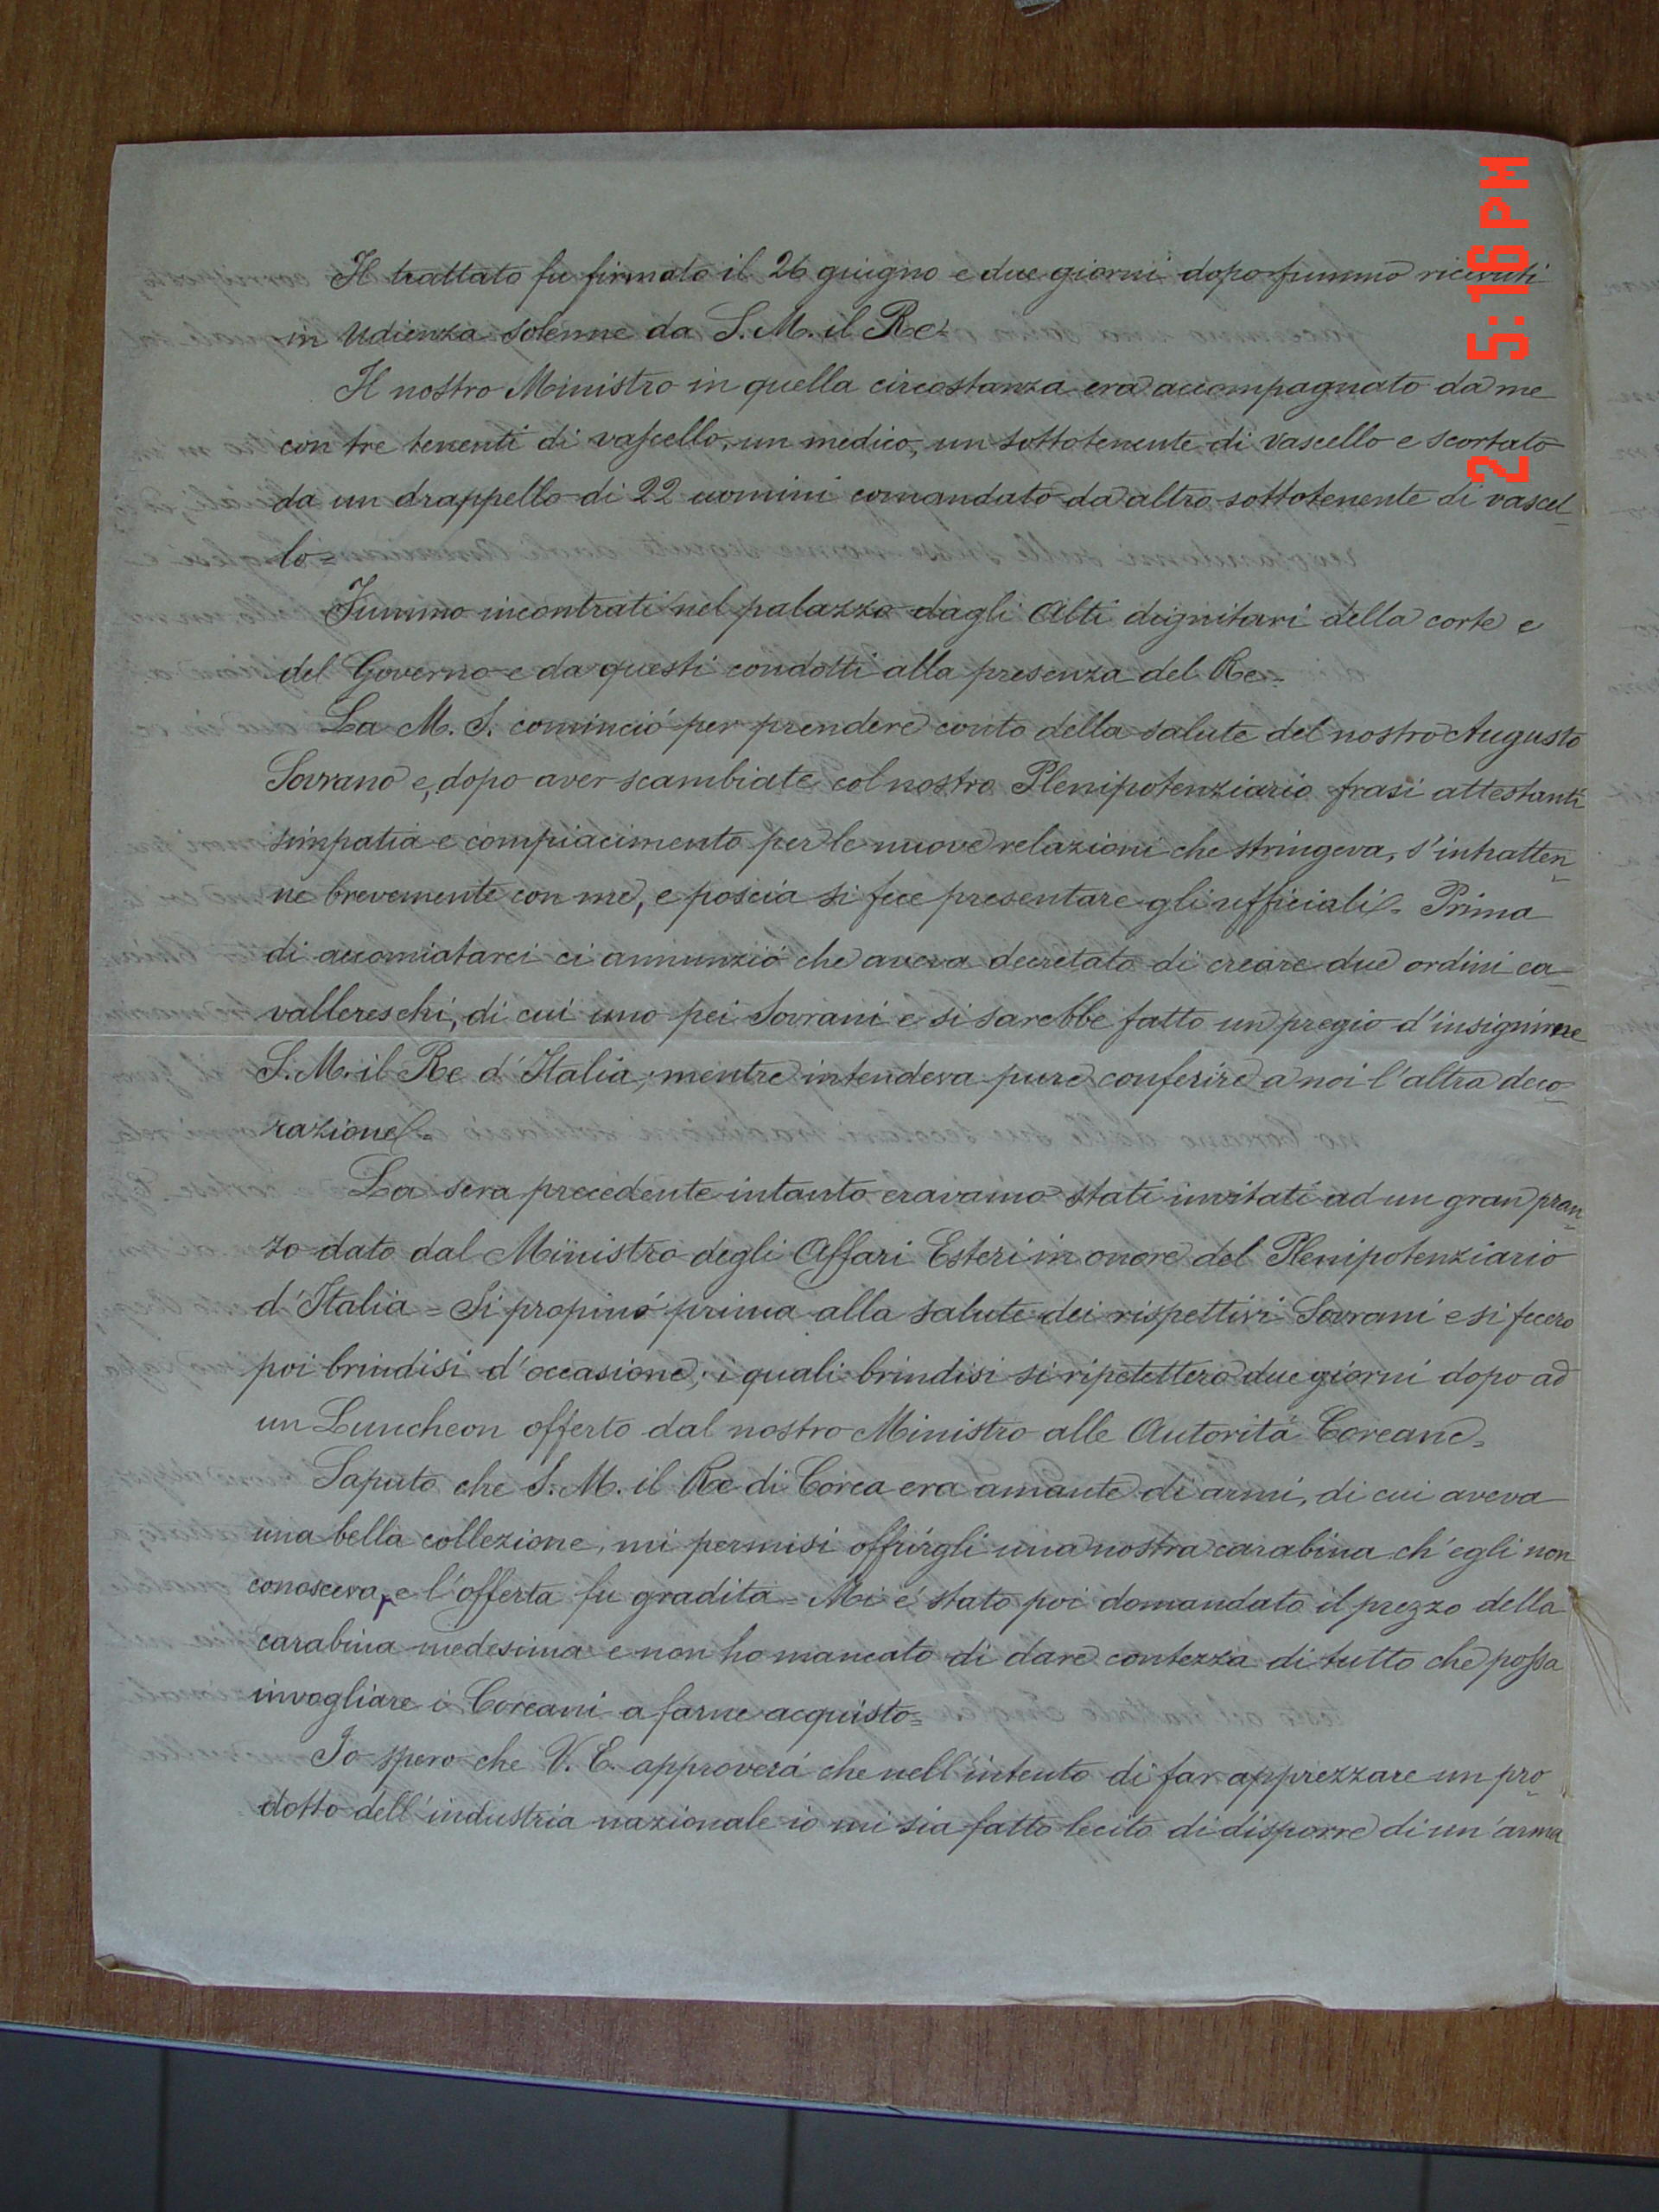 Il trattato fu firmato il 26 giugno e due giorni dopo fummo ricevuti
in udienza solenne da S. M. il Re=
Il nostro Ministro in quella circostanza era accompagnato da me
con tre tenenti di vascello, un medico, un sottotenente di vascello e scortato
da un drappello di 22 uomini comandato da altro sottotenente di vascel-
lo=
Fummo incontrati nel palazzo dagli Alti dignitari della corte e
del Governo e da questi condotti alla presenza del Re=
La M. S. cominció per prendere conto della salute del nostro Augusto
Sovrano e, dopo aver scambiate col nostro Plenipotenziario frasi attestanti
simpatia e compiacimento per le nuove relazioni che stringeva, s'intratten-
ne brevemente con me, e poscia si fece presentare gli ufficiali= Prima
di accomiatarci ci annunzió che aveva decretato di creare due ordini ca-
vallereschi, di cui uno pei Sovrani e si sarebbe fatto un pregio d'insignirne
S. M. il Re d'Italia, mentre intendeva pure conferire a noi l'altra deco-
razione=
La sera precedente intanto eravamo stati invitati ad un gran pran-
zo dato dal Ministro degli Affari Esteri in onore del Plenipotenziario
d'Italia = Si propinó prima alla salute dei rispettivi Sovrani e si fecero
poi brindisi d'occasione; i quali brindisi si ripetettero due giorni dopo ad
un Luncheon offerto dal nostro Ministro alle Autoritá Coreane=
Saputo che S. M. il Re di Corea era amante di armi, di cui aveva
una bella collezione, mi permisi offrirgli una nostra carabina ch'egli non
conosceva, e l'offerta fu gradita = Mi é stato poi domandato il prezzo della
carabina medesima e non ho mancato di dare contezza di tutto che possa
invogliare i Coreani a farne acquisto=
Io spero che V. E. approverá che nell'intento di far apprezzare un pro-
dotto dell'industria nazionale io mi sia fatto lecito di disporre di un'arma
2 5:16 PM